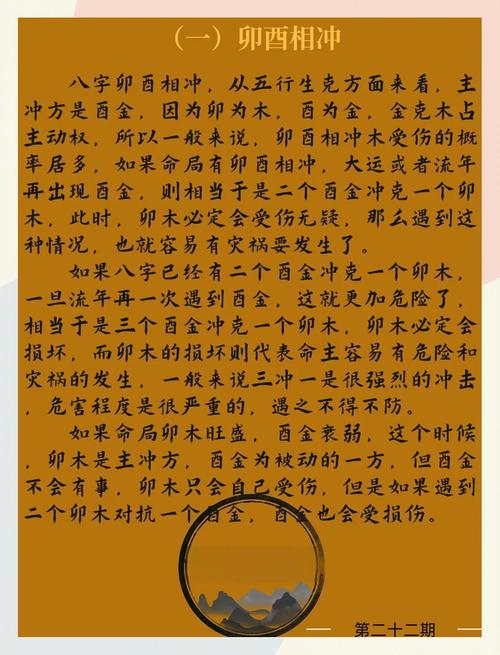 （一）卯酉相冲
八字卯酉相冲，从五行生克方面来看，主
冲方是酉金，因为卯为木，酉为金，金克木占
主动权，所以一般来说，卯酉相冲木受伤的概
率居多，如果命局有卯酉相冲，大运或者流年
再出现酉金，则相当于是二个酉金冲克一个卯
木，此时，卯木必定会受伤无疑，那么遇到这
种情况，也就容易有灾祸要发生了。
如果八字已经有二个酉金冲克一个卯木，
一旦流年再一次遇到酉金，这就更加危险了，
相当于是三个酉金冲克一个卯木，卯木必定会
损坏，而卯木的损坏则代表命主容易有危险和
灾祸的发生，一般来说三冲一是很强烈的冲击
，危害程度是很严重的，遇之不得不防。
如果命局卯木旺盛，酉金衰弱，这个时候
，卯木是主冲方，酉金为被动的一方，但酉金
不会有事，卯木只会自己受伤，但是如果遇到
二个卯木对抗一个酉金，酉金也会受损伤。
第二十二期